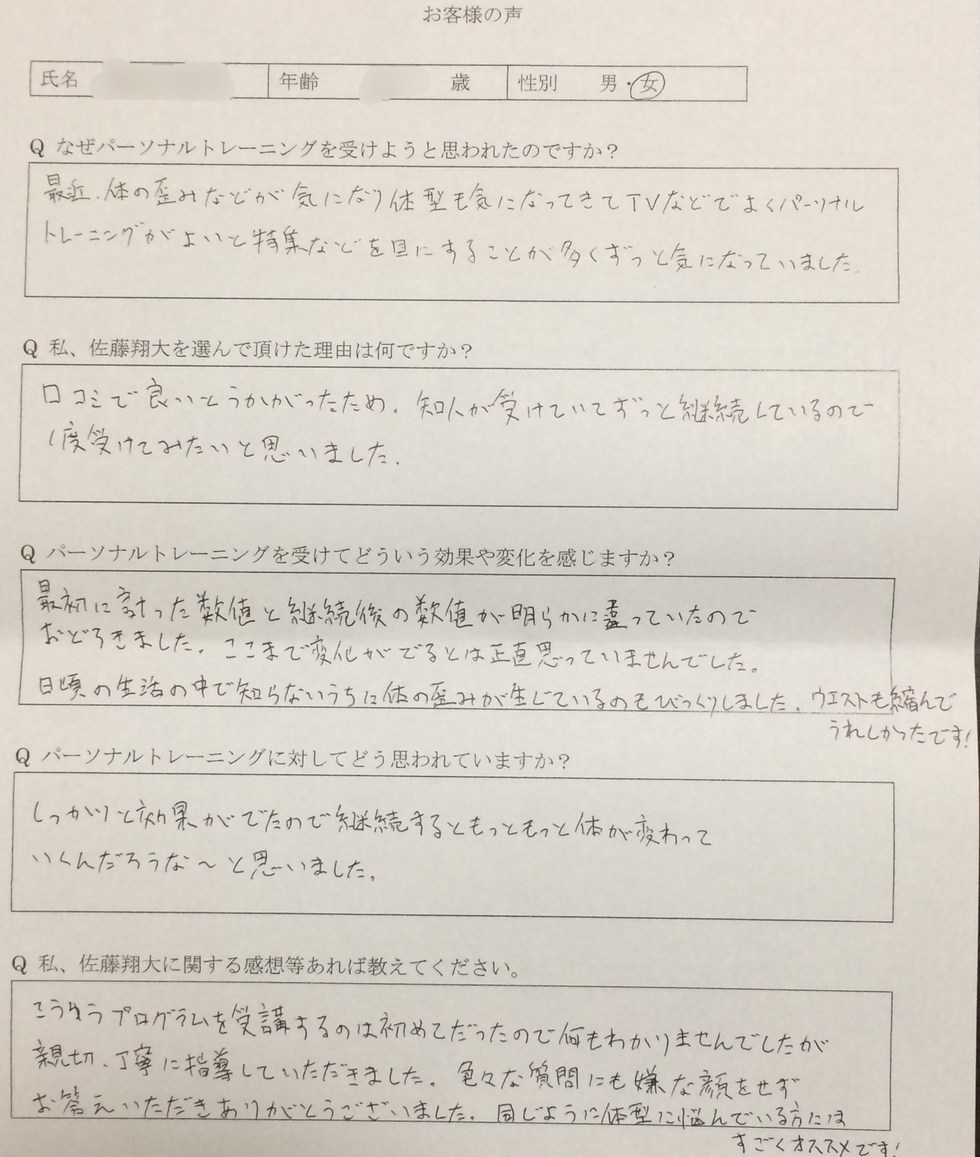 お客様の声
氏名 年齢 歳 性別 男・女
Q なぜパーソナルトレーニングを受けようと思われたのですか？
最近、体の歪みなどが気になり体型も気になってきてTVなどでよくパーソナル
トレーニングがよいと特集などを目にすることが多くずっと気になっていました。
Q 私、佐藤翔大を選んで頂けた理由は何ですか？
口コミで良いとうかがったため、知人が受けていてずっと継続しているので
1度受けてみたいと思いました。
Q パーソナルトレーニングを受けてどういう効果や変化を感じますか？
最初に計った数値と継続後の数値が明らかに違っていたので
おどろきました。ここまで変化がでるとは正直思っていませんでした。
日頃の生活の中で知らないうちに体の歪みが生じているのもびっくりしました。ウエストも縮んで
うれしかったです!
Q パーソナルトレーニングに対してどう思われていますか？
しっかりと効果がでたので継続するともっともっと体が変わって
いくんだろうな〜と思いました。
Q 私、佐藤翔大に関する感想等あれば教えてください。
こうゆうプログラムを受講するのは初めてだったので何もわかりませんでしたが
親切、丁寧に指導していただきました。色々な質問にも嫌な顔をせず
お答えいただきありがとうございました。同じように体型に悩んでいる方には
すごくオススメです!